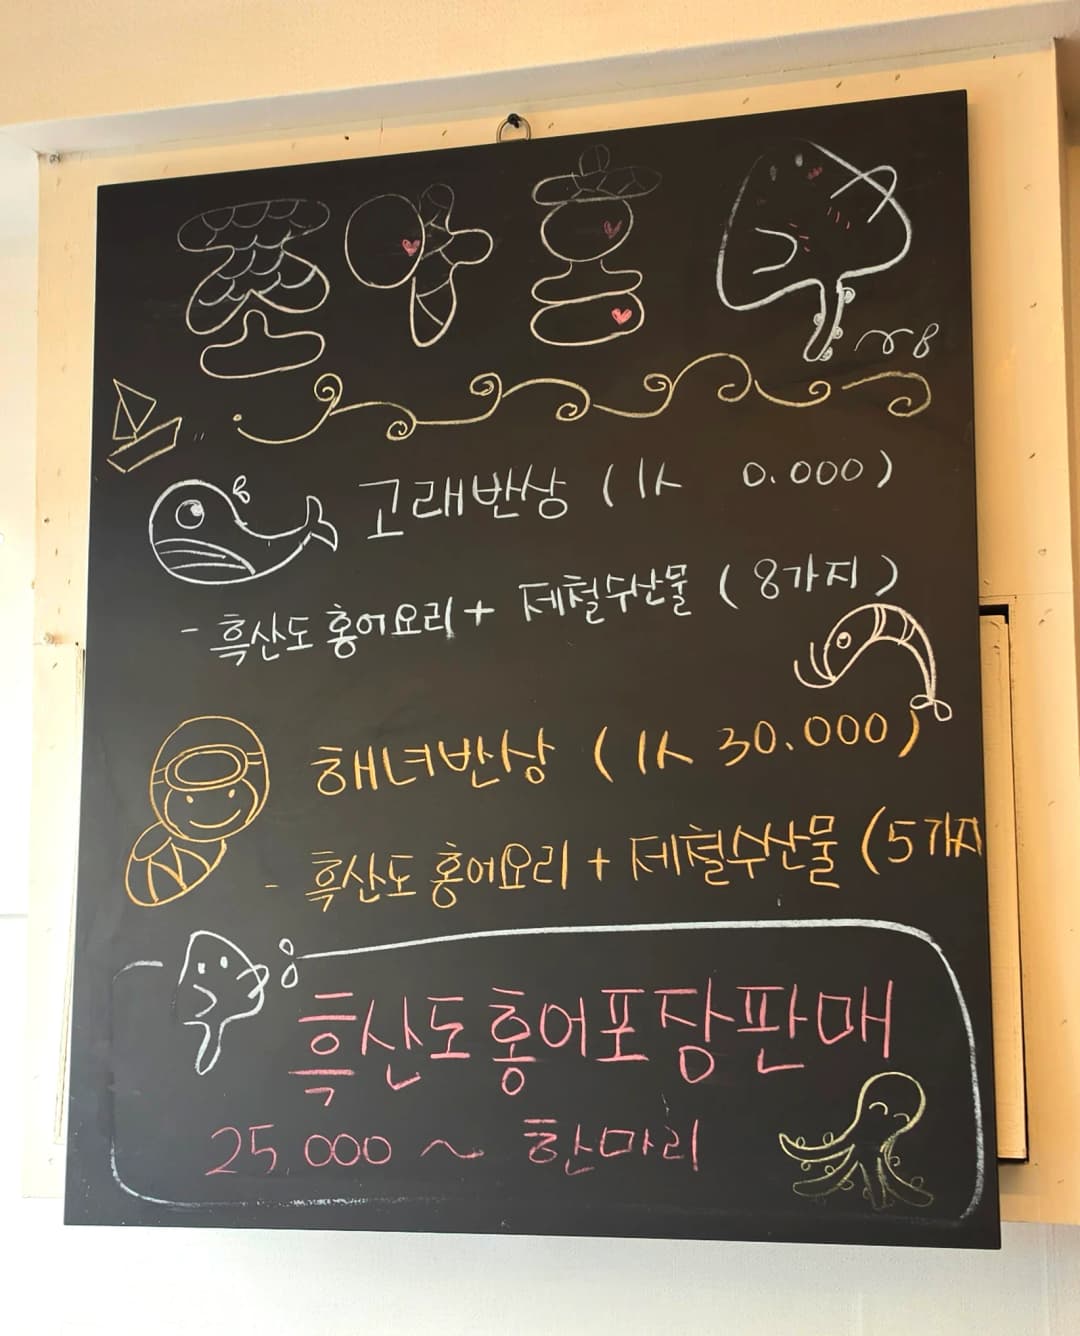 조아홍
고래반상 (1人 0.000)
- 흑산도 홍어요리 + 제철수산물 (8가지)
해녀반상 (1人 30.000)
- 흑산도 홍어요리 + 제철수산물 (5가지
흑산도홍어포장판매
25,000 ~ 한마리